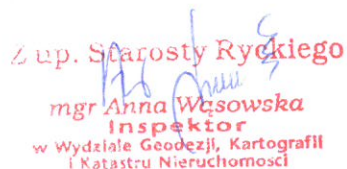 Z up. Starosty Ryckiego
mgr Anna Wąsowska
Inspektor
w Wydziale Geodezji, Kartografii
i Katastru Nieruchomości